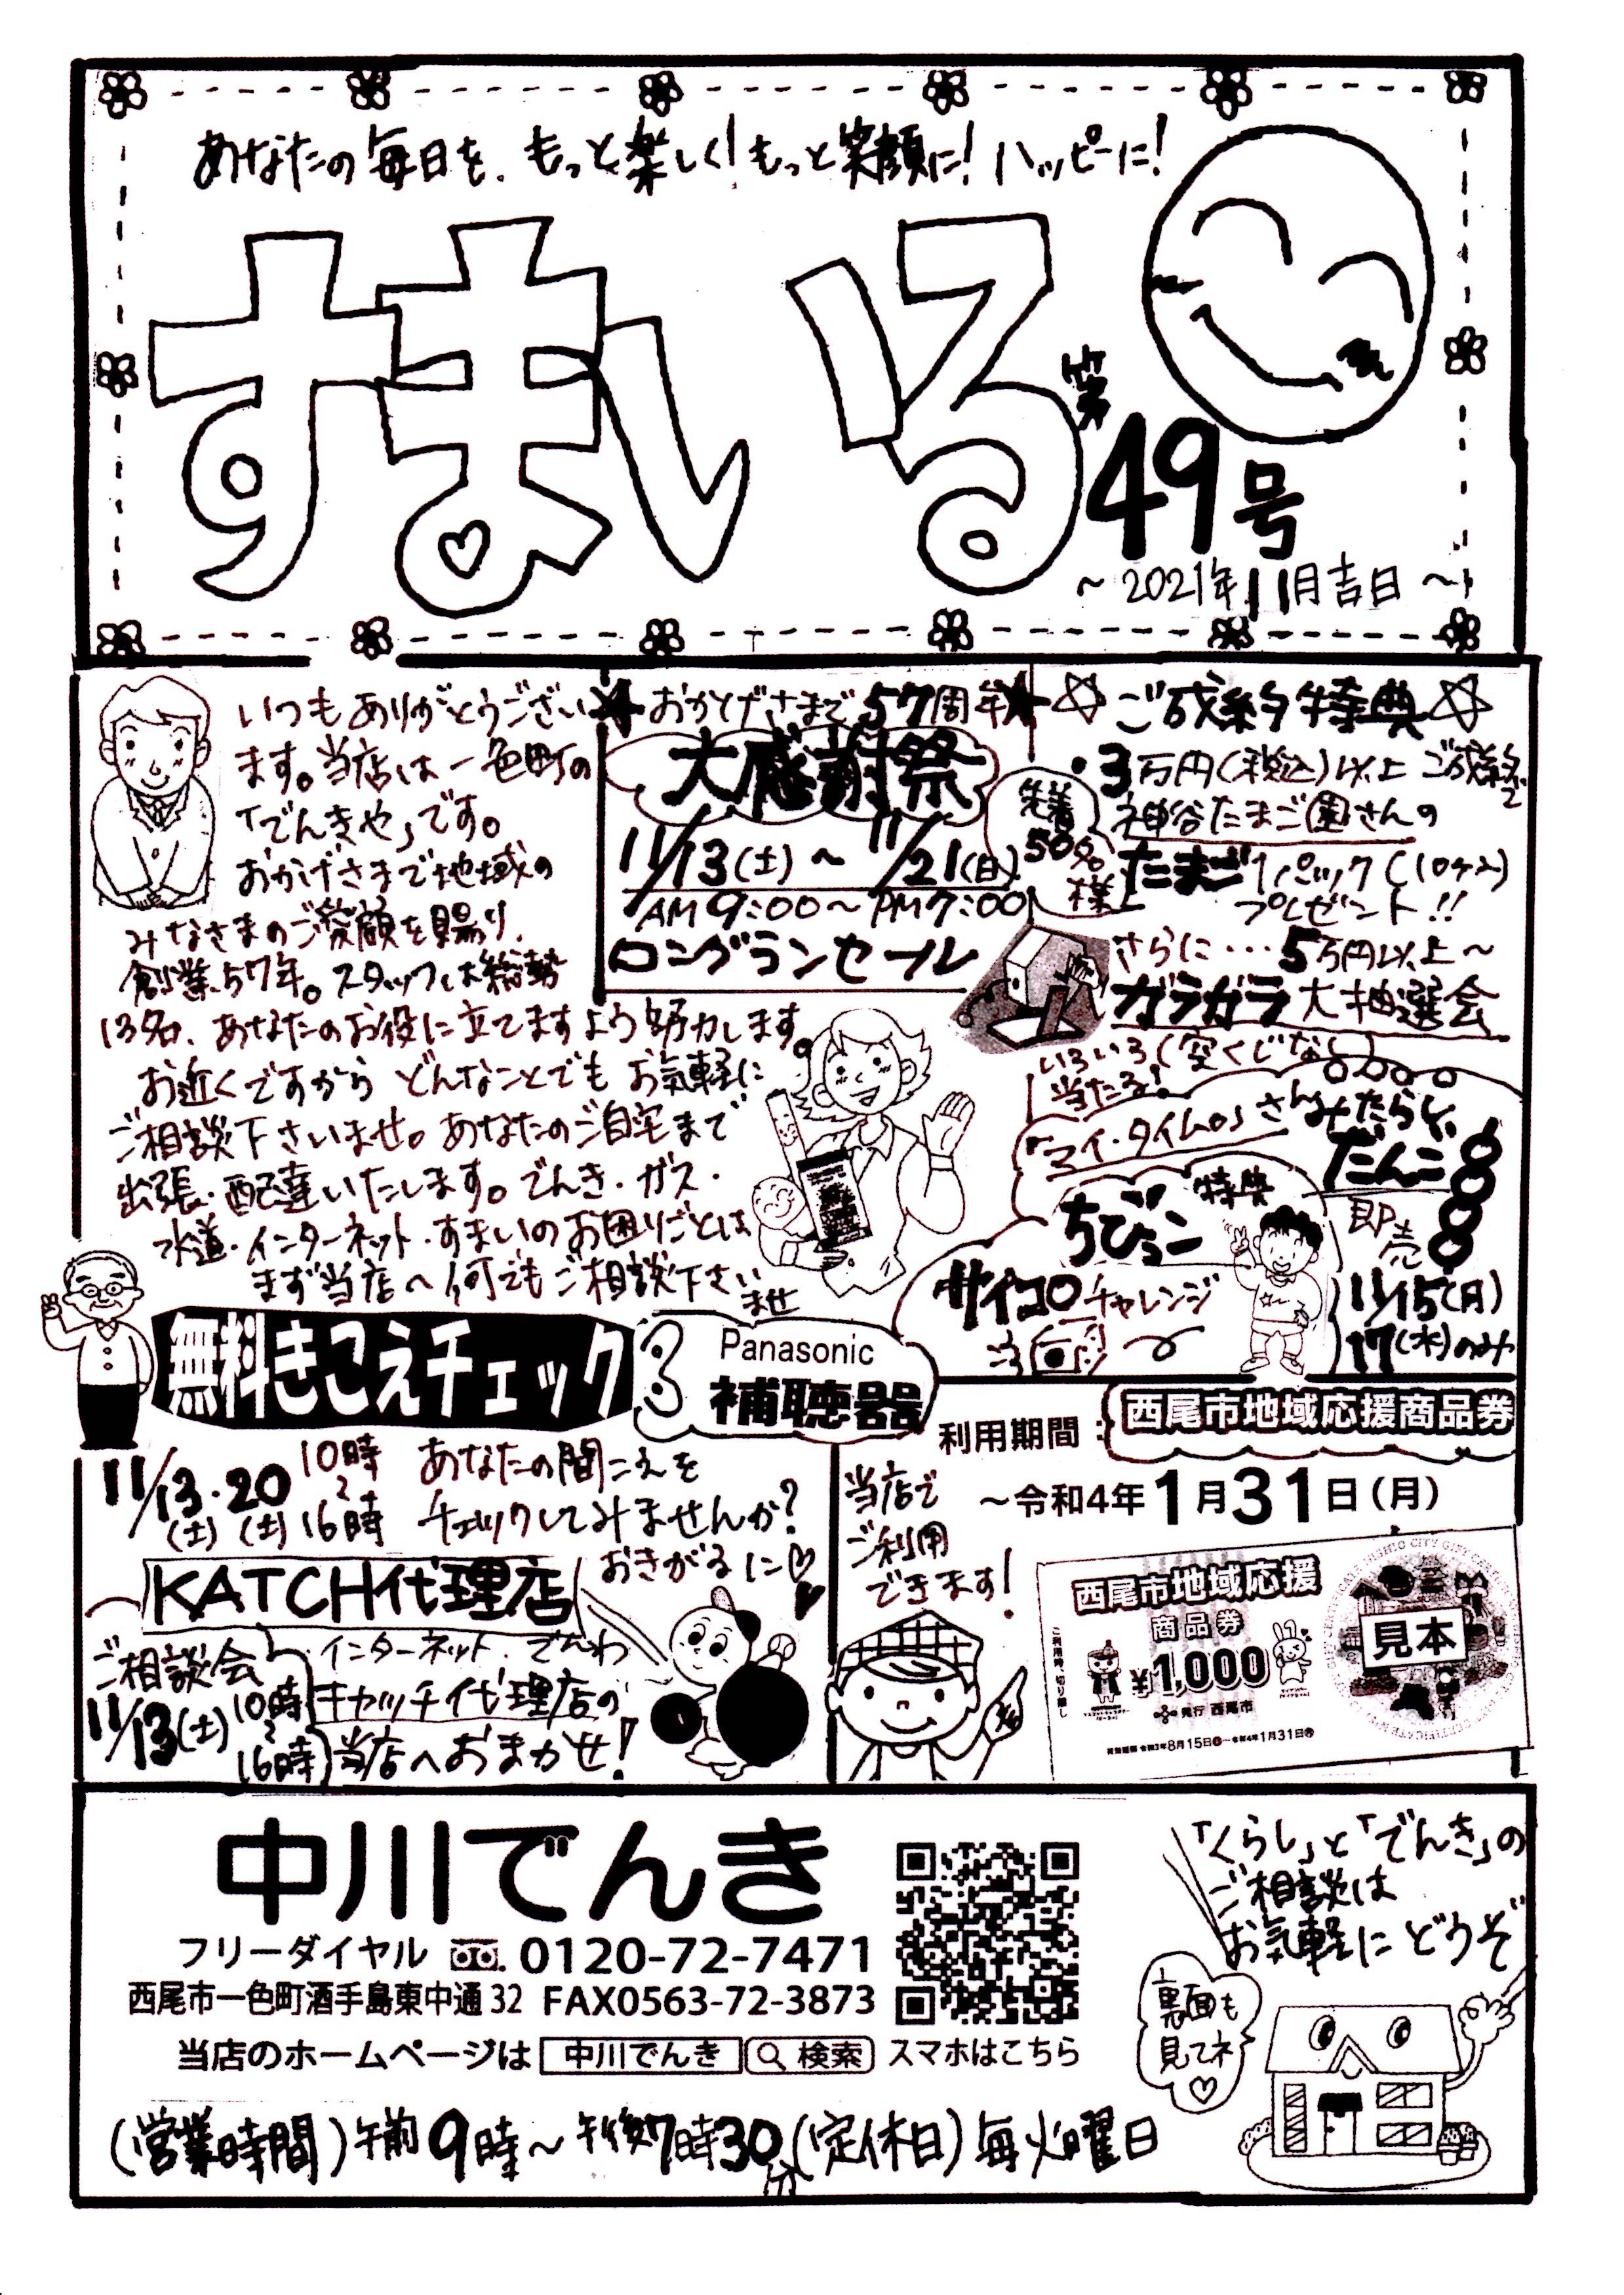 あなたの毎日を、もっと楽しく!もっと笑顔に!ハッピーに!
すまいる
第49号
～2021年11月吉日～
いつもありがとうござい
ます。当店は一色町の
「でんきや」です。
おかげさまで地域の
みなさまのご愛顧を賜り、
創業57年。スタッフは総勢
13名、あなたのお役に立てますよう努力します。
お近くですから どんなことでも お気軽に
ご相談下さいませ。あなたのご自宅まで
出張・配達いたします。でんき・ガス・
水道・インターネット・すまいのお困りごとは
まず当店へ何でもご相談下さいませ
おかげさまで57周年
大感謝祭
11/13(土)～11/21(日)
AM9:00～PM7:00
ロングランセール
☆ご成約特典☆
・3万円(税込)以上ご成約で
先着50名様
神谷たまご園さんの
たまご1パック(10ケ入)
プレゼント!!
さらに…5万円以上～
ガラガラ大抽選会
いろいろ(空くじなし)
当たる!
「マイ・タイム」さんみたらし
だんご
即売
11/15(月)
17(水)のみ
ちびっこ特典
サイコロチャレンジ
無料きこえチェック
Panasonic
補聴器
11/13・20 10時～16時
(土)(土)
あなたの聞こえを
チェックしてみませんか?
おきがるに♡
KATCH代理店
ご相談会
11/13(土)10時～16時
インターネット・でんわ
キャッチ代理店の
当店へおまかせ!
利用期間:西尾市地域応援商品券
～令和4年1月31日(月)
当店で
ご利用
できます!
西尾市地域応援
商品券
¥1,000
発行 西尾市
ご利用時、切り離し
見本
有効期間 令和3年8月15日㊐～令和4年1月31日㊊
中川でんき
フリーダイヤル 0120-72-7471
西尾市一色町酒手島東中通32 FAX0563-72-3873
当店のホームページは 中川でんき 検索 スマホはこちら
(営業時間)午前9時～午後7時30分(定休日)毎火曜日
「くらし」と「でんき」の
ご相談は
お気軽にどうぞ
裏面も
見てネ
♡